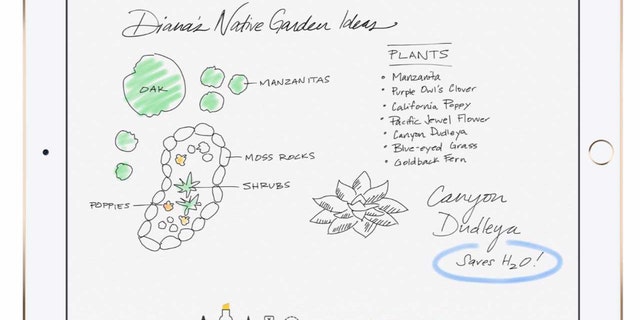 Diana's Native Garden Ideas
OAK
MANZANITAS
MOSS ROCKS
SHRUBS
POPPIES
PLANTS
• Manzanita
• Purple Owl's Clover
• California Poppy
• Pacific Jewel Flower
• Canyon Dudleya
• Blue-eyed Grass
• Goldback Fern
Canyon
Dudleya
Saves H₂O!